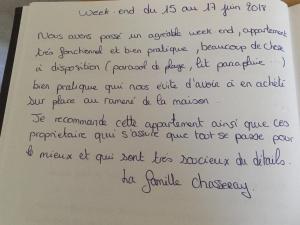 Week-end du 15 au 17 juin 2018
Nous avons passé un agréable week end, appartement
très fonctionnel et bien pratique, beaucoup de chose
à disposition (parasol de plage, lit parapluie...)
bien pratique qui nous evite d'avoir à en acheté
sur place ou ramené de la maison.
Je recommande cette appartement ainsi que ces
proprietaire qui s'assure que tout se passe pour
le mieux et qui sont très soucieux du details.
La famille Chasseray.